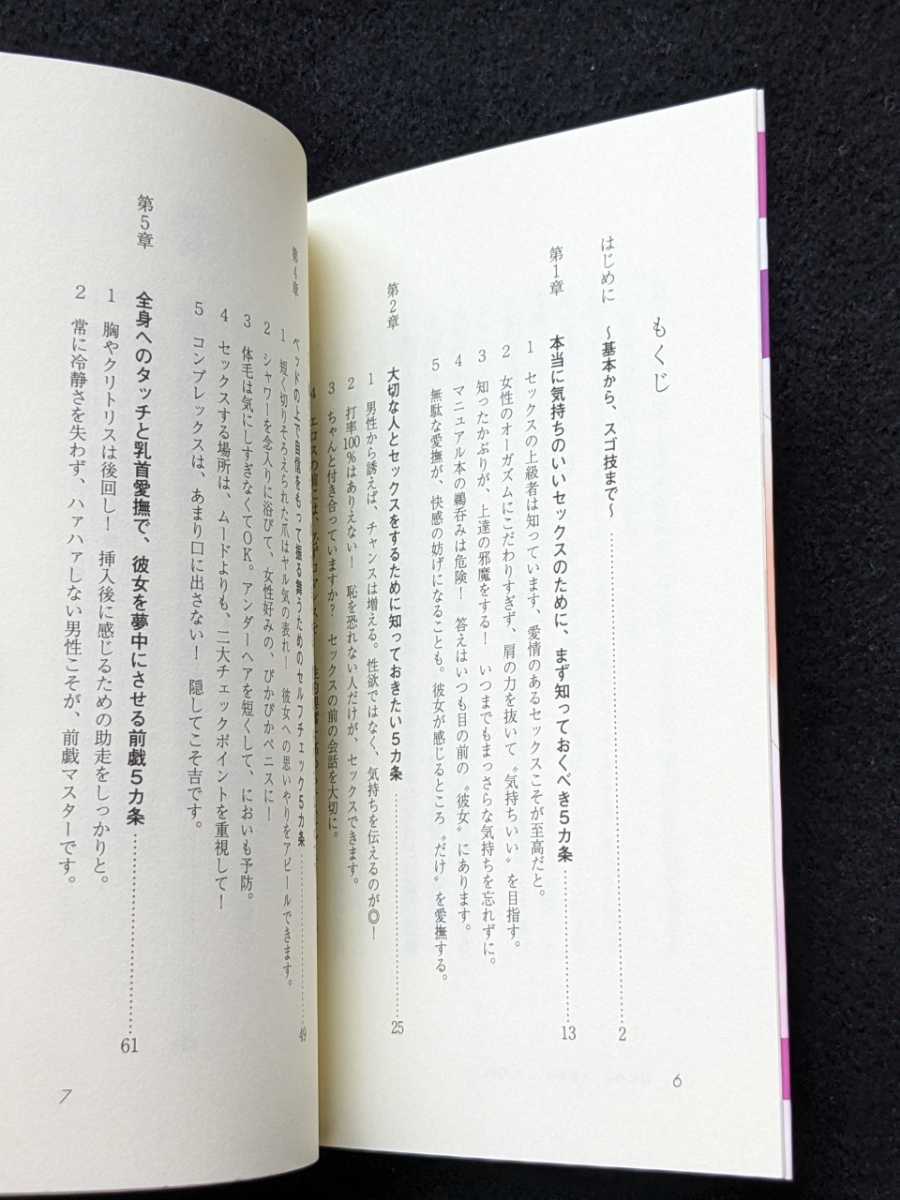 もくじ
はじめに　～基本から、スゴ技まで～……………… 2
第1章　本当に気持ちのいいセックスのために、まず知っておくべき5カ条……………… 13
1　セックスの上級者は知っています、愛情のあるセックスこそが至高だと。
2　女性のオーガズムにこだわりすぎず、肩の力を抜いて〝気持ちいい〟を目指す。
3　知ったかぶりが、上達の邪魔をする！　いつまでもまっさらな気持ちを忘れずに。
4　マニュアル本の鵜呑みは危険！　答えはいつも目の前の〝彼女〟にあります。
5　無駄な愛撫が、快感の妨げになることも。彼女が感じるところ〝だけ〟を愛撫する。
第2章　大切な人とセックスをするために知っておきたい5カ条……………… 25
1　男性から誘えば、チャンスは増える。性欲ではなく、気持ちを伝えるのが◎！
2　打率100％はありえない！　恥を恐れない人だけが、セックスできます。
3　ちゃんと付き合っていますか？　セックスの前の会話を大切に。
4　エロスの前には
6
第4章　ベッドの上で自信をもって振る舞うためのセルフチェック5カ条……………… 49
1　短く切りそろえられた爪はヤル気の表れ！　彼女への思いやりをアピールできます。
2　シャワーを念入りに浴びて、女性好みの、ぴかぴかペニスに！
3　体毛は気にしすぎなくてOK。アンダーヘアを短くして、においも予防。
4　セックスする場所は、ムードよりも、二大チェックポイントを重視して！
5　コンプレックスは、あまり口に出さない！　隠してこそ吉です。
第5章　全身へのタッチと乳首愛撫で、彼女を夢中にさせる前戯5カ条……………… 61
1　胸やクリトリスは後回し！　挿入後に感じるための助走をしっかりと。
2　常に冷静さを失わず、ハァハァしない男性こそが、前戯マスターです。
7